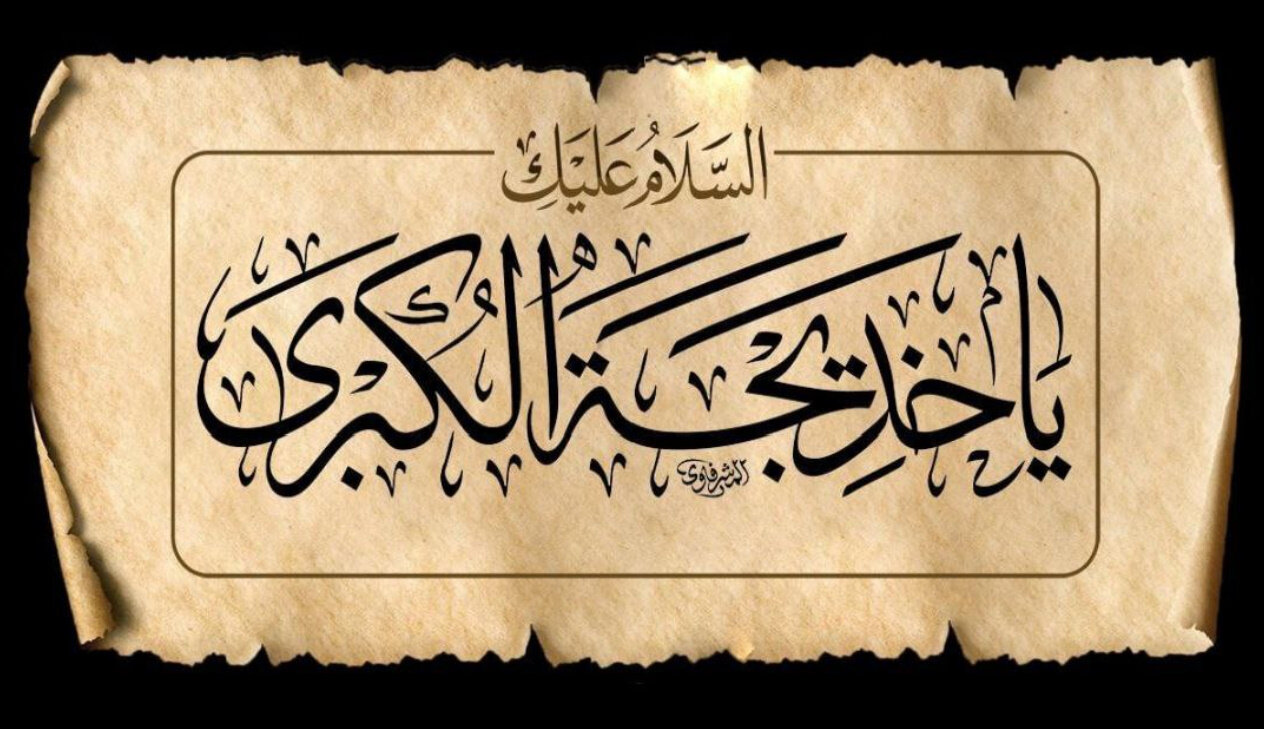 السَّلَامُ عَلَيْكِ
يَا خَدِيجَةُ الْكُبْرَى
المشرفاوي